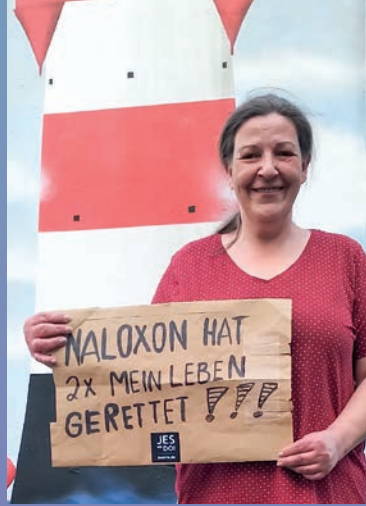 NALOXON HAT
2X MEIN LEBEN
GERETTET !!!
JES
DO!